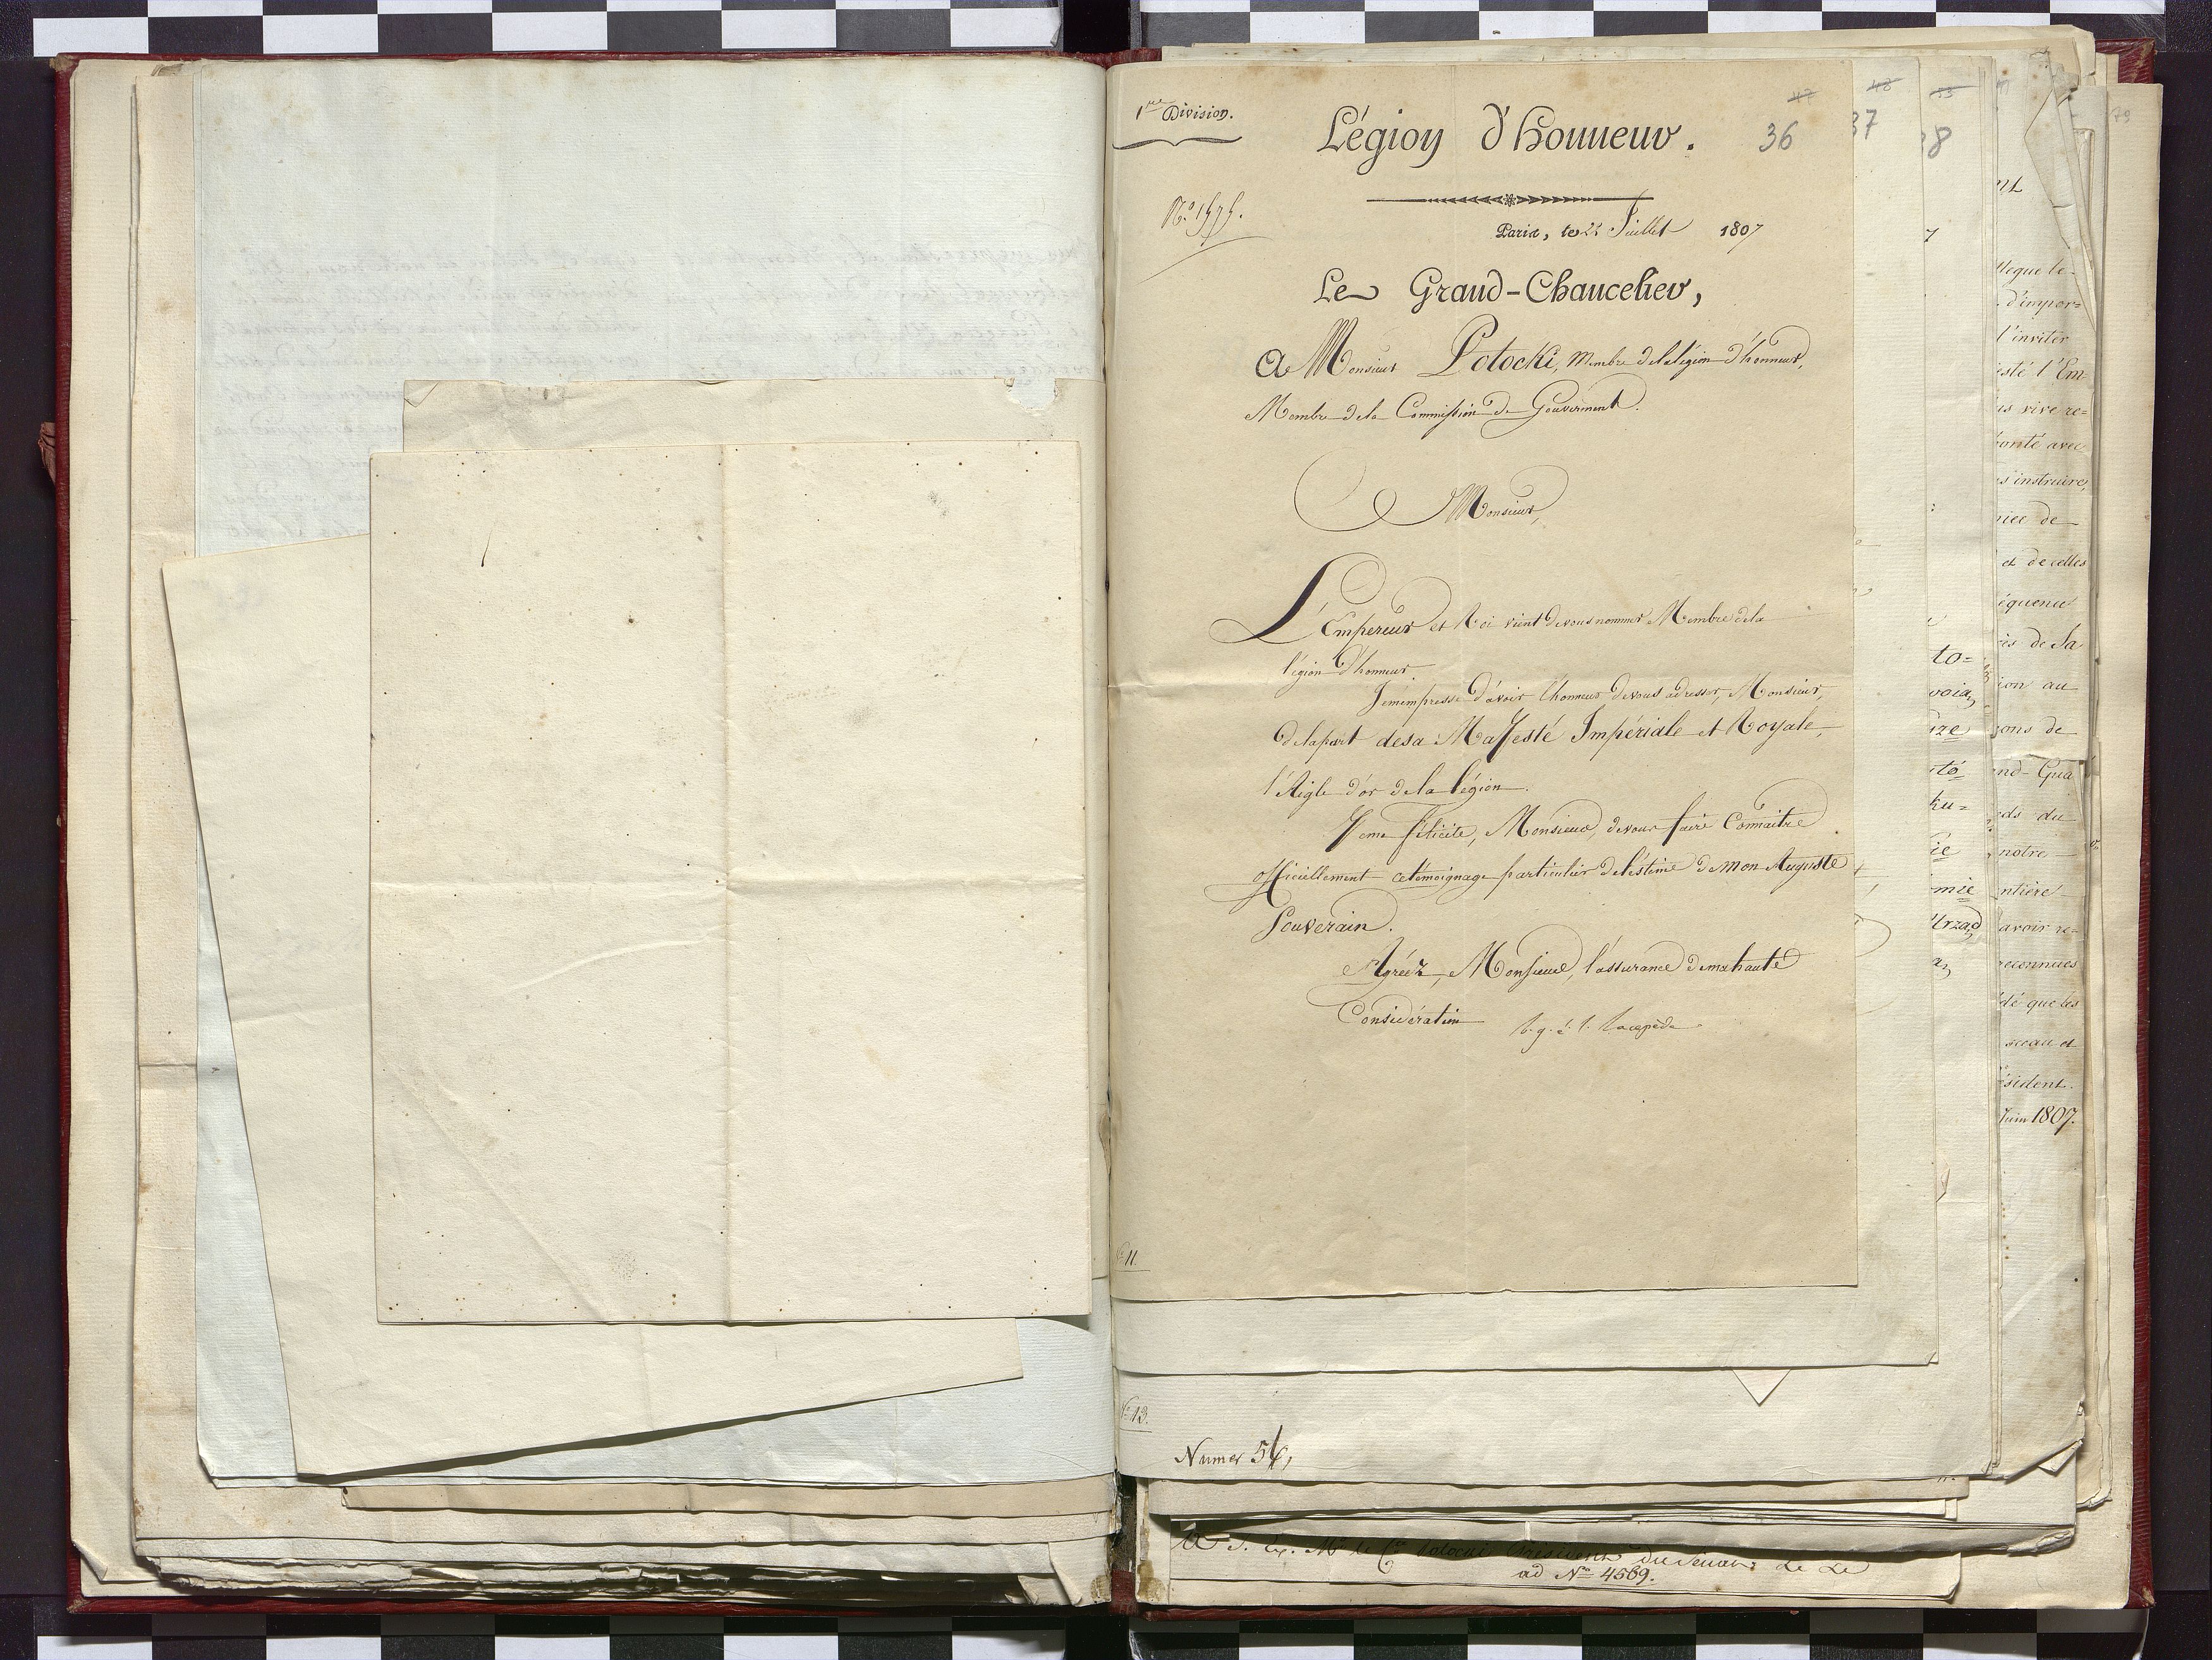 1re Division.
Légion d'honneur.
47
36
Paris, le 22 Juillet 1807
Le Grand-Chancelier,
A Monsieur Potocki, Membre de la légion d'honneur,
Membre de la Commission de Gouverment.
Monsieur,
L'Empereur et Roi vient de vous nommer Membre de la
légion d'honneur.
Je m'empresse d'avoir l'honneur de vous adresser, Monsieur,
de la part de sa Majesté Impériale et Royale,
l'Aigle d'or de la légion.
Je me félicite, Monsieur, de vous faire Connaître
officiellement ce témoignage particulier de l'éstime de mon Auguste
Souverain.
Agréez, Monsieur, l'assurance de ma haute
Considération b. g. é. l. Lacepède
11.
48
37
8
to=
ku=
ie
mie
nt
llegue le-
d'impor=
l'inviter
esté l'Em-
us vive re=
bonté avec
s instruire,
rice de
et de celles
équence
ris de Sa
ion au
sons de
nd-Gua
eds du
notre
ntière
avoir re=
reconnues
idé que les
sceau et
ésident.
Juin 1807.
79
No 13.
Numer 54,
ad No 4569.